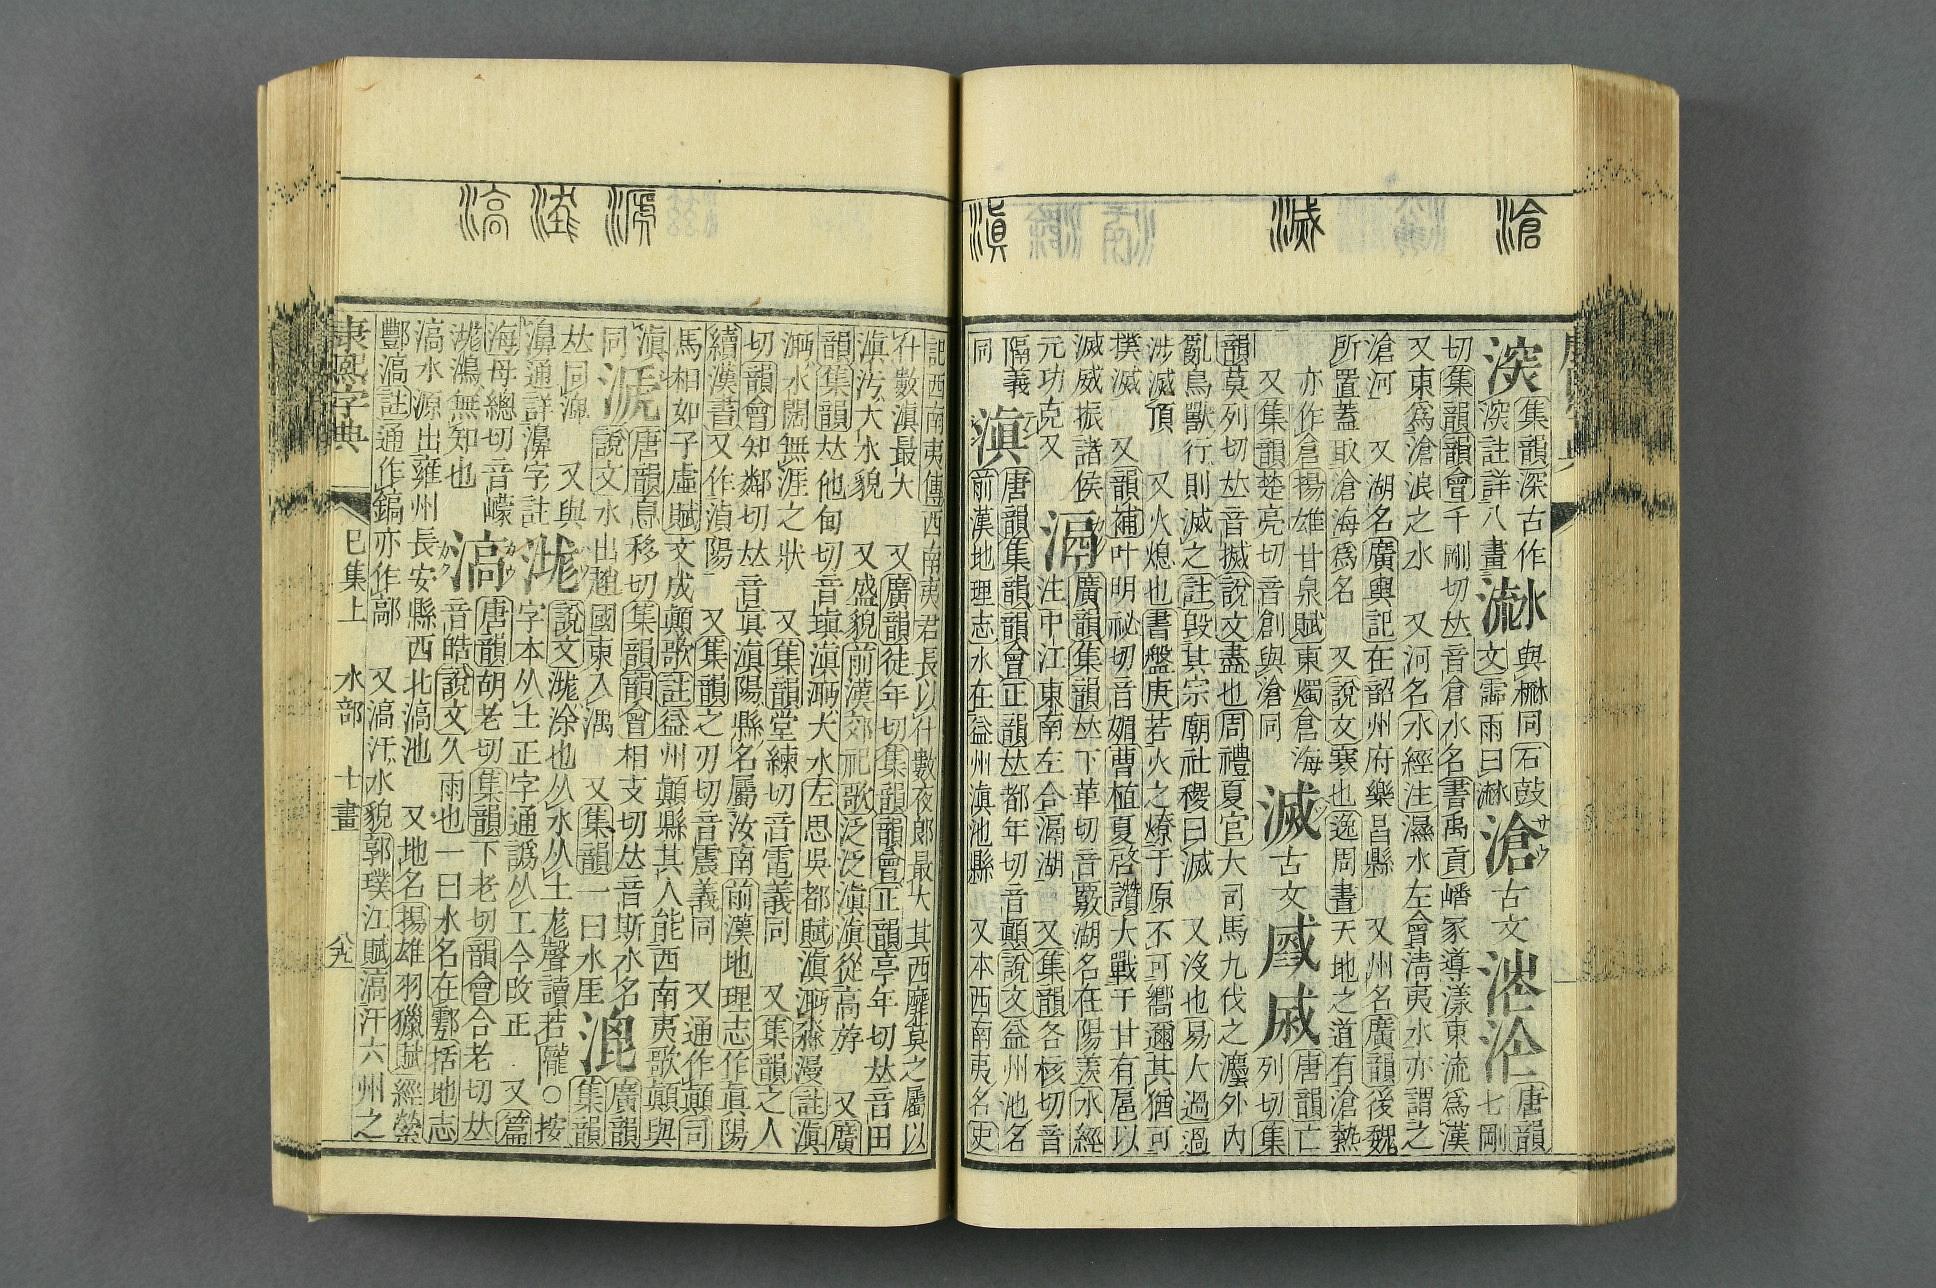 滄
滅
滇
集韻深古作
湥註詳八畫
㴇
與𣻣同石鼓
文霝雨曰𣻣
滄
古文
唐韻
七剛
切集韻韻會千剛切𠀤音倉水名書禹貢嶓冢導漾東流爲漢
又東爲滄浪之水 又河名水經注濕水左會清夷水亦謂之
滄河 又湖名廣輿記在韶州府樂昌縣 又州名廣韻後魏
所置蓋取滄海爲名 又說文寒也逸周書天地之道有滄熱
亦作倉揚雄甘泉賦東燭倉海
又集韻楚亮切音創與滄同
滅
古文
唐韻亡
列切集
韻莫列切𠀤音搣說文盡也周禮夏官大司馬九伐之灋外內
亂鳥獸行則滅之註毀其宗廟社稷曰滅 又沒也易大過過
涉滅頂 又火熄也書盤庚若火之燎于原不可嚮邇其猶可
撲滅 又韻補叶明祕切音媚曹植夏啓讚大戰于甘有扈以
滅威振諸侯
元功克又
滆
廣韻集韻𠀤下革切音覈湖名在陽羨水經
注中江東南左合滆湖 又集韻各核切音
隔義
同
滇
唐韻集韻韻會正韻𠀤都年切音顚說文益州池名
前漢地理志水在益州滇池縣 又本西南夷名史
㴲
𣹢
滈
記西南夷傳西南夷君長以什數夜郎最大其西靡莫之屬以
什數滇最大 又廣韻徒年切集韻韻會正韻亭年切𠀤音田
滇汚大水貌 又盛貌前漢郊祀歌泛泛滇滇從高斿 又廣
韻集韻𠀤他甸切音瑱滇㴐大水左思吳都賦滇㴐淼漫註滇
㴐水闊無涯之狀 又集韻堂練切音電義同 又集韻之人
切韻會知鄰切𠀤音眞滇陽縣名屬汝南前漢地理志作眞陽
續漢書又作滇陽 又集韻之刃切音震義同 又通作顚司
馬相如子虛賦文成顚歌註益州顚縣其人能西南夷歌顚與
滇
同
㴲
唐韻息移切集韻韻會相支切𠀤音斯水名
說文水出趙國東入湡 又集韻一曰水厓
滭
廣韻
集韻
𠀤同
濞通詳濞字註
又與
𣹢
說文𣹢涂也从水从土尨聲讀若隴○按
字本从土正字通譌从工今改正 又篇
海母總切音幪
𣹢鴻無知也
滈
唐韻胡老切集韻下老切韻會合老切𠀤
音皓說文久雨也一曰水名在鄠括地志
滈水源出雍州長安縣西北滈池 又地名揚雄羽獵賦經營
酆滈註通作鎬亦作鄗 又滈汗水貌郭璞江賦滈汗六州之
康熙字典
巳集上 水部 十畫
八九